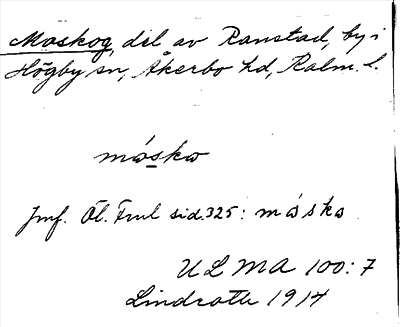 Maskog, del av Ranstad, by i
Högby sn, Åkerbo hd, Kalm. l.
måsko
Jmf. Öl.Ful sid. 325: måsko
ULMA 100:7
Lindroth 1914